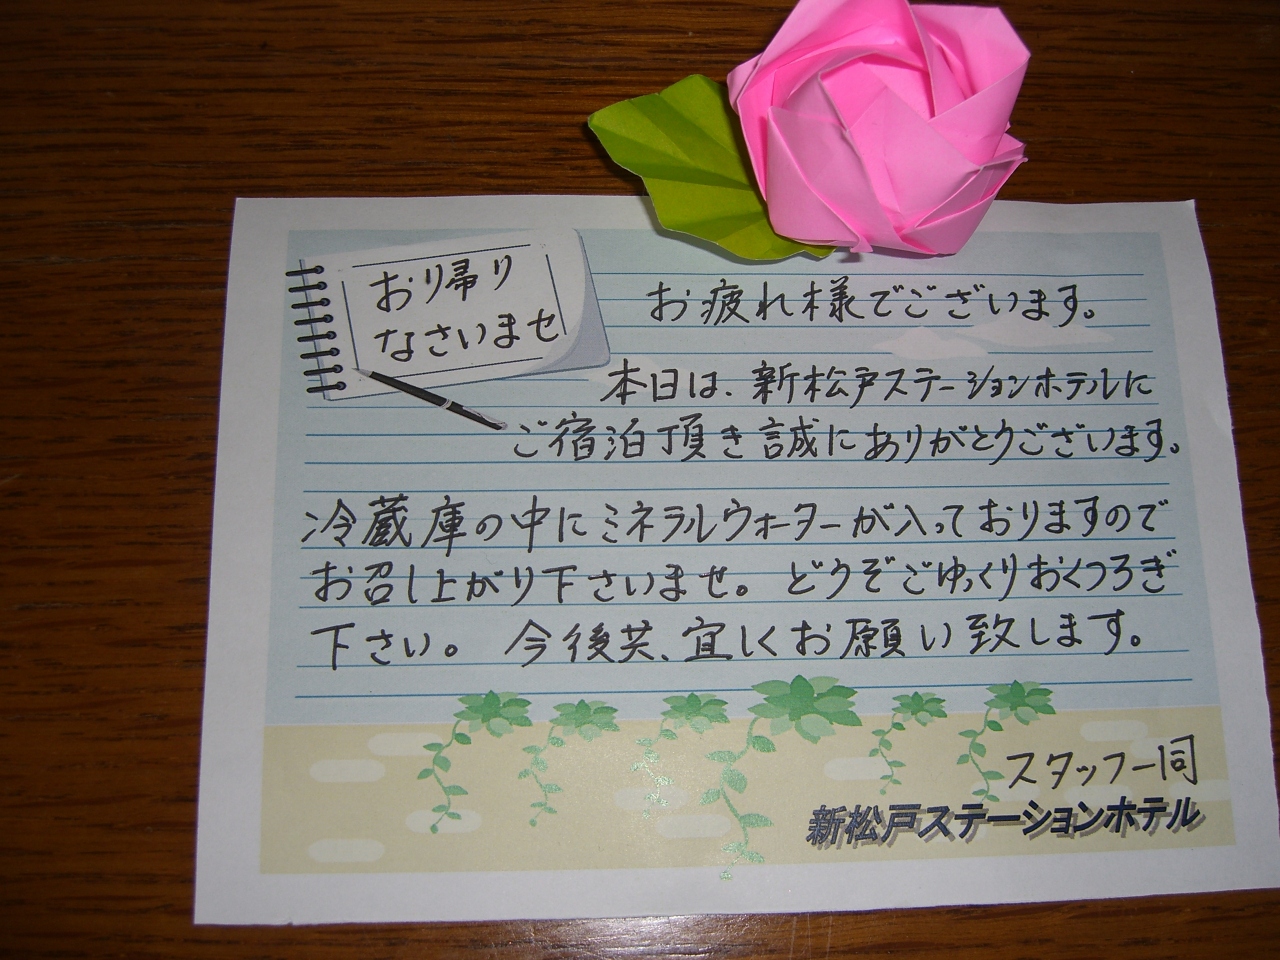 おり帰り
なさいませ
お疲れ様でございます。
本日は、新松戸ステーションホテルに
ご宿泊頂き誠にありがとうございます。
冷蔵庫の中にミネラルウォーターが入っておりますので
お召し上がり下さいませ。どうぞごゆっくりおくつろぎ
下さい。今後共、宜しくお願い致します。
スタッフ一同
新松戸ステーションホテル